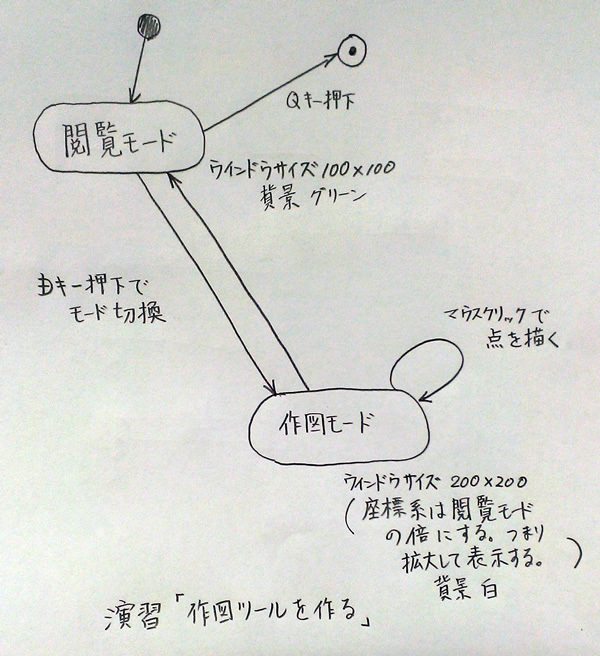 Qキー押下
閲覧モード
ウインドウサイズ 100×100
背景 グリーン
キー押下で
モード切換
マウスクリックで
点を描く
作図モード
ウインドウサイズ 200×200
(座標系は閲覧モード
の倍にする。つまり
拡大して表示する。)
背景 白
演習「作図ツールを作る」